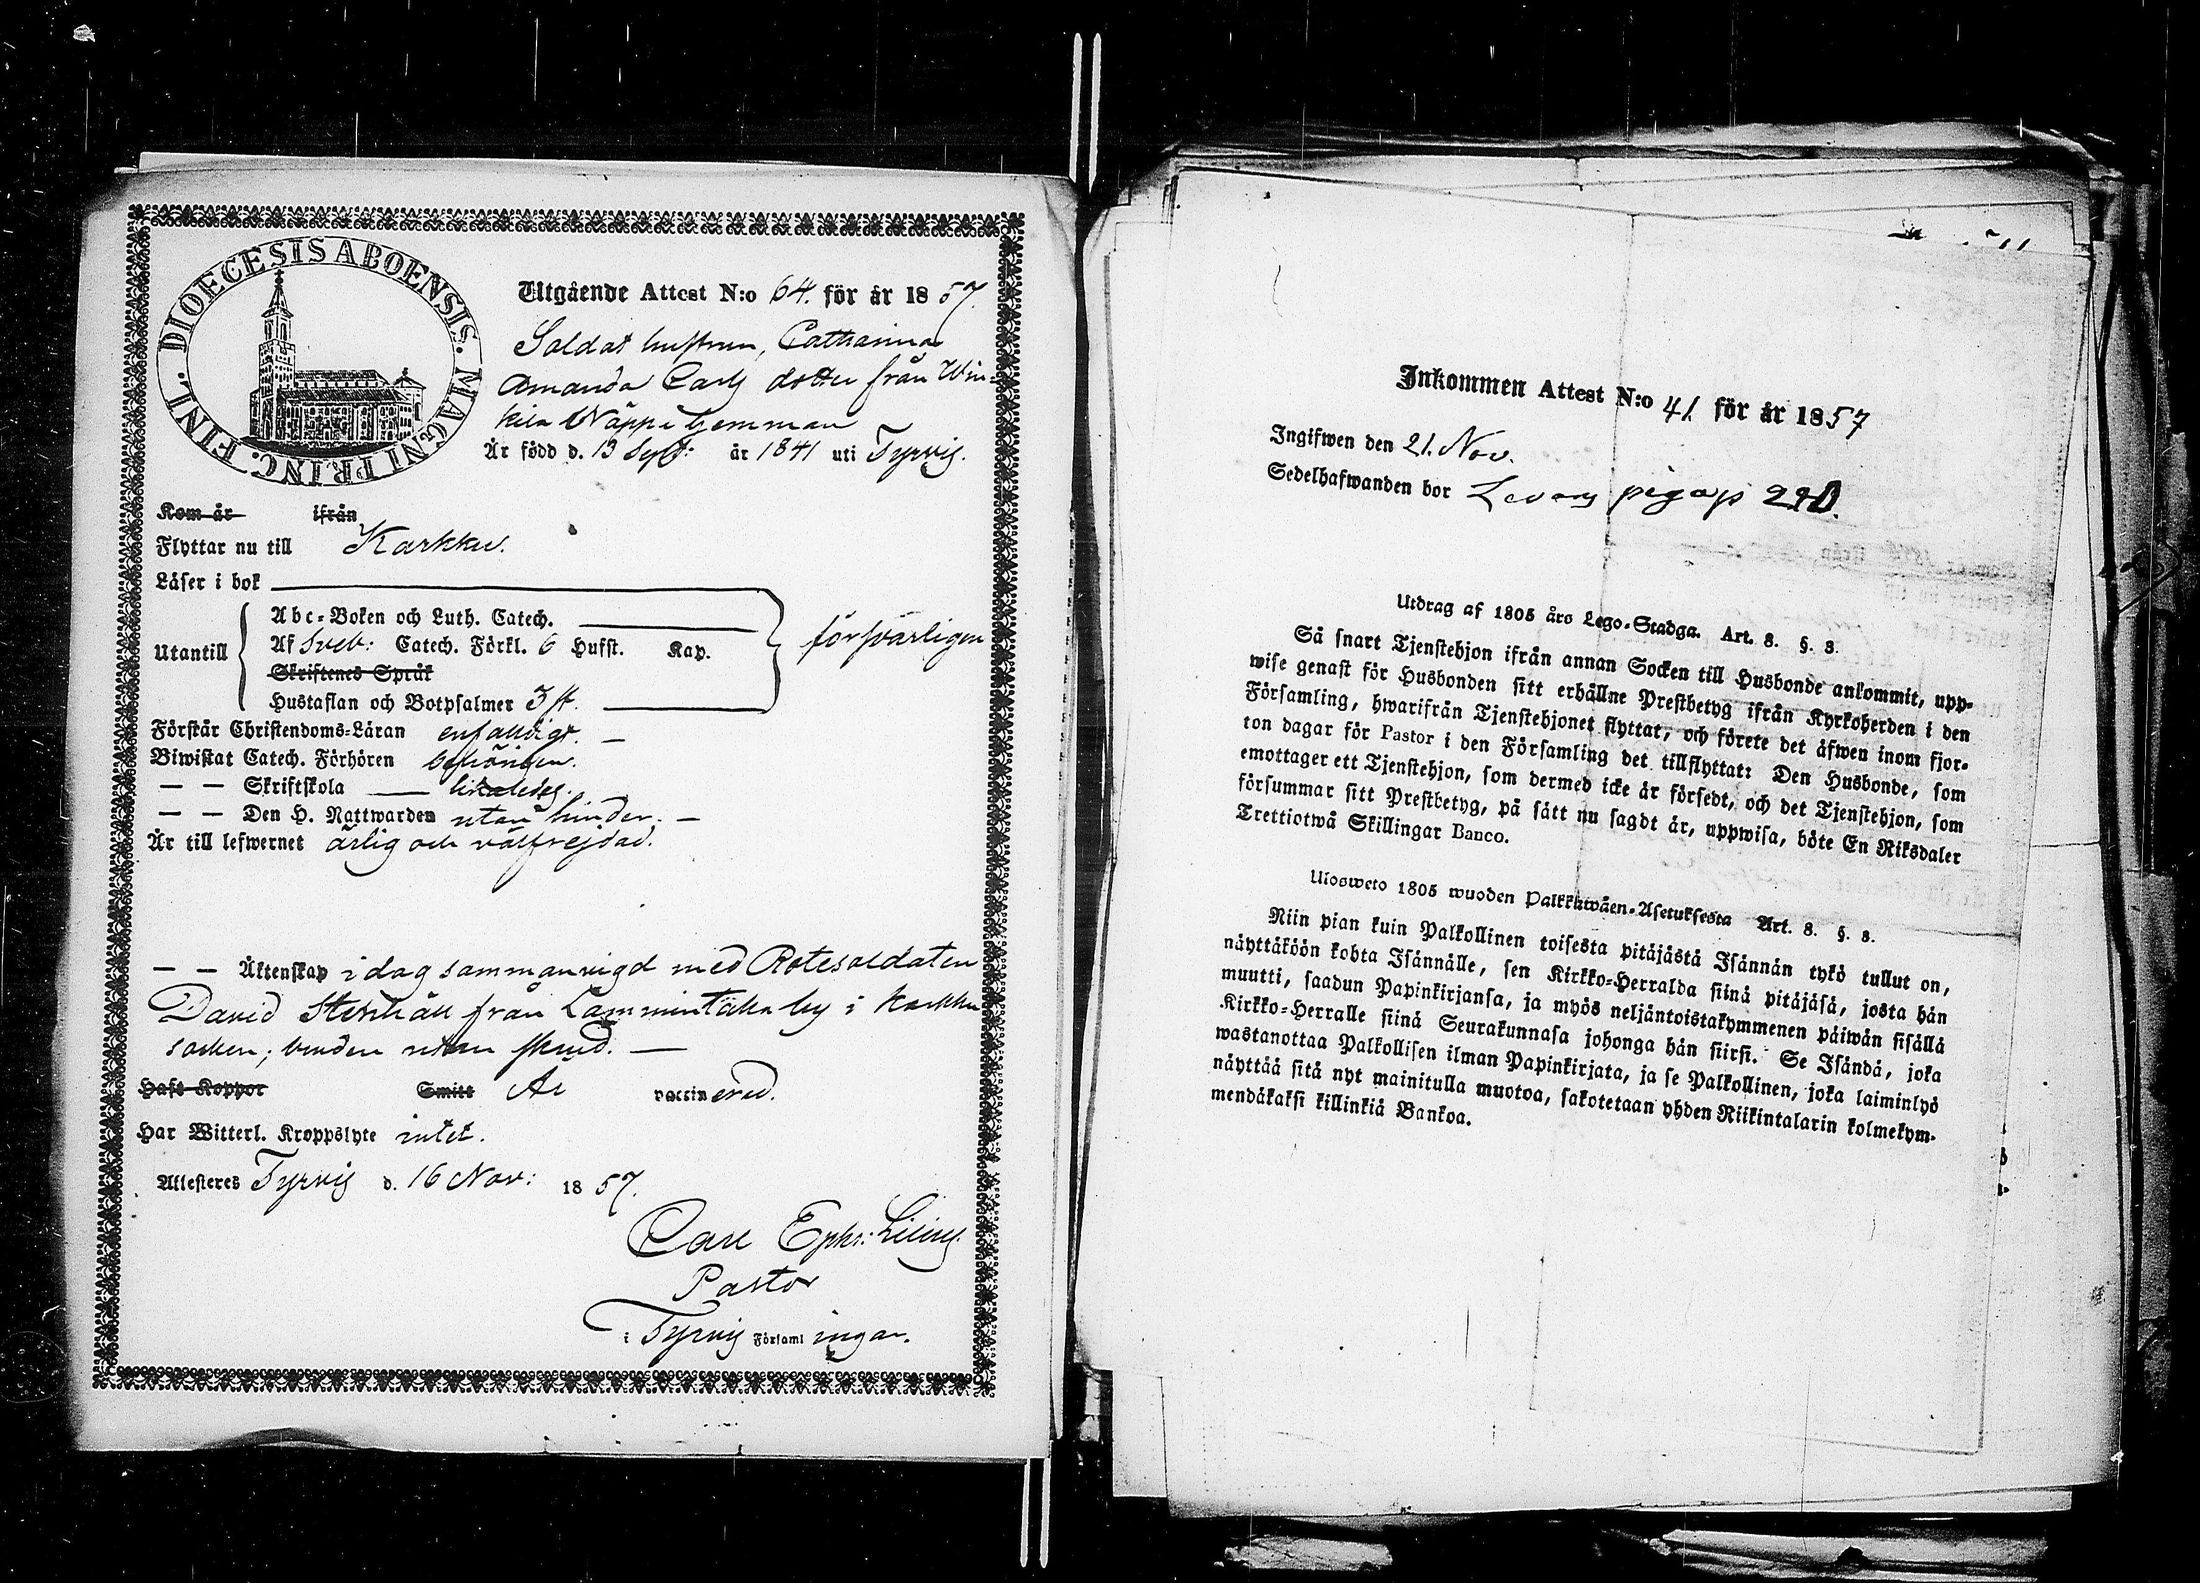 DIOECESIS ABOENSIS. MAGNI PRINC. FINL.
Utgående Attest N:o 64. för år 1857.
Soldat hustrun, Catharina
Amanda Carls dotter från Win-
kila Näppi hemman
Är född d. 13 Sept: år 1841 uti Tyrvis.
Kom år ifrån
Flyttar nu till Karkku.
Läser i bok
Utantill
Abc-Boken och Luth. Catech.
Af Sveb: Catech. Förkl. 6 Hufst. Kap.
Skriftenes Språk
Hustaflan och Botpsalmer 3 st.
försvarligen
Förstår Christendoms-Läran enfaldigt. —
Biwistat Catech. Förhören behörigen.
— — Skriftskola — likaledes.
— — Den H. Nattwarden utan hinder. —
Är till lefwernet ärlig och välfrejdad.
— — Äktenskap i dag sammanvigd med Rotesoldaten
David Stenhäll från Lammentaka by i Karkku
socken; bruden utan skrud. —
Haft Koppor Smitt Är vaccinerad.
Har Witterl. Kroppslyte intet.
Attesteres Tyrvis d. 16 Nov: 1857.
Carl Ephr: Lilius.
Pastor
i Tyrvis Församlingar.
Inkommen Attest N:o 41 för år 1857
Ingifwen den 21. Nov.
Sedelhafwanden bor
Utdrag af 1805 års Lego-Stadga. Art. 8. §. 8.
Så snart Tjenstehjon ifrån annan Socken till Husbonde ankommit, upp-
wise genast för Husbonden sitt erhållne Prestbetyg ifrån Kyrkoherden i den
Församling, hwarifrån Tjenstehjonet flyttat, och förete det äfwen inom fjor-
ton dagar för Pastor i den Församling det tillflyttat: Den Husbonde, som
emottager ett Tjenstehjon, som dermed icke är försedt, och det Tjenstehjon, som
försummar sitt Prestbetyg, på sätt nu sagdt är, uppwisa, böte En Riksdaler
Trettiotwå Skillingar Banco.
Ulosweto 1805 wuoden Palkkawäen-Asetuksesta Art. 8. §. 8.
Niin pian kuin Palkollinen toisesta pitäjästä Isännän tykö tullut on,
näyttäköön kohta Isännälle, sen Kirkko-Herralda siinä pitäjäsä, josta hän
muutti, saadun Papinkirjansa, ja myös neljäntoistakymmenen päiwän sisällä
Kirkko-Herralle siinä Seurakunnasa johonga hän siirsi. Se Isändä, joka
wastanottaa Palkollisen ilman Papinkirjata, ja se Palkollinen, joka laiminlyö
näyttää sitä nyt mainitulla muotoa, sakotetaan yhden Riikintalarin kolmekym-
mendäkaksi killinkiä Bankoa.